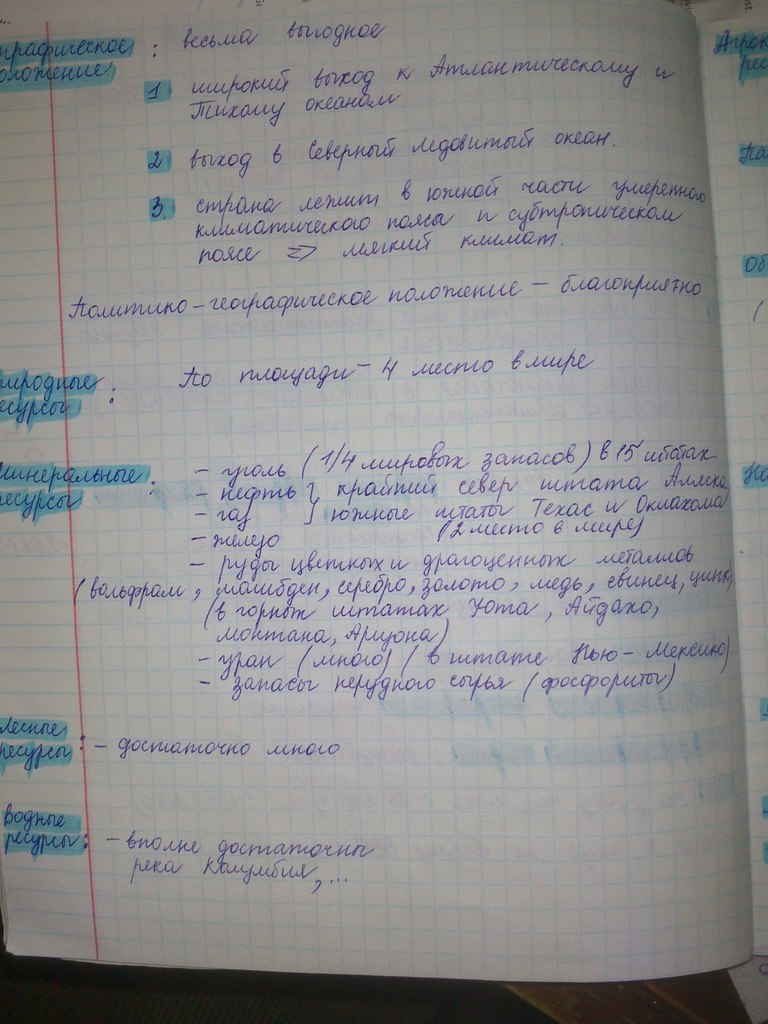 графическое : весьма выгодное
оложение
1 широкий выход к Атлантическому и
Тихому океанам
2 выход в Северный Ледовитый океан.
3. страна лежит в южной части умеренного
климатического пояса и субтропическом
поясе => мягкий климат.
Политико-географическое положение - благоприятно
иродные : По площади - 4 место в мире
есурсы
минеральные :
ресурсы
- уголь (1/4 мировых запасов) в 15 штатах
- нефть } крайний север штата Аляска
- газ } южные штаты Техас и Оклахома
- железо (2 место в мире)
- руды цветных и драгоценных металлов
(вольфрам, молибден, серебро, золото, медь, свинец, цинк)
(в горных штатах Юта, Айдахо,
Монтана, Аризона)
- уран (много) (в штате Нью-Мексико)
- запасы нерудного сырья (фосфориты)
Лесные
ресурсы : - достаточно много
водные
ресурсы : - вполне достаточны
река Колумбия, ...
Агрок
рес
Об